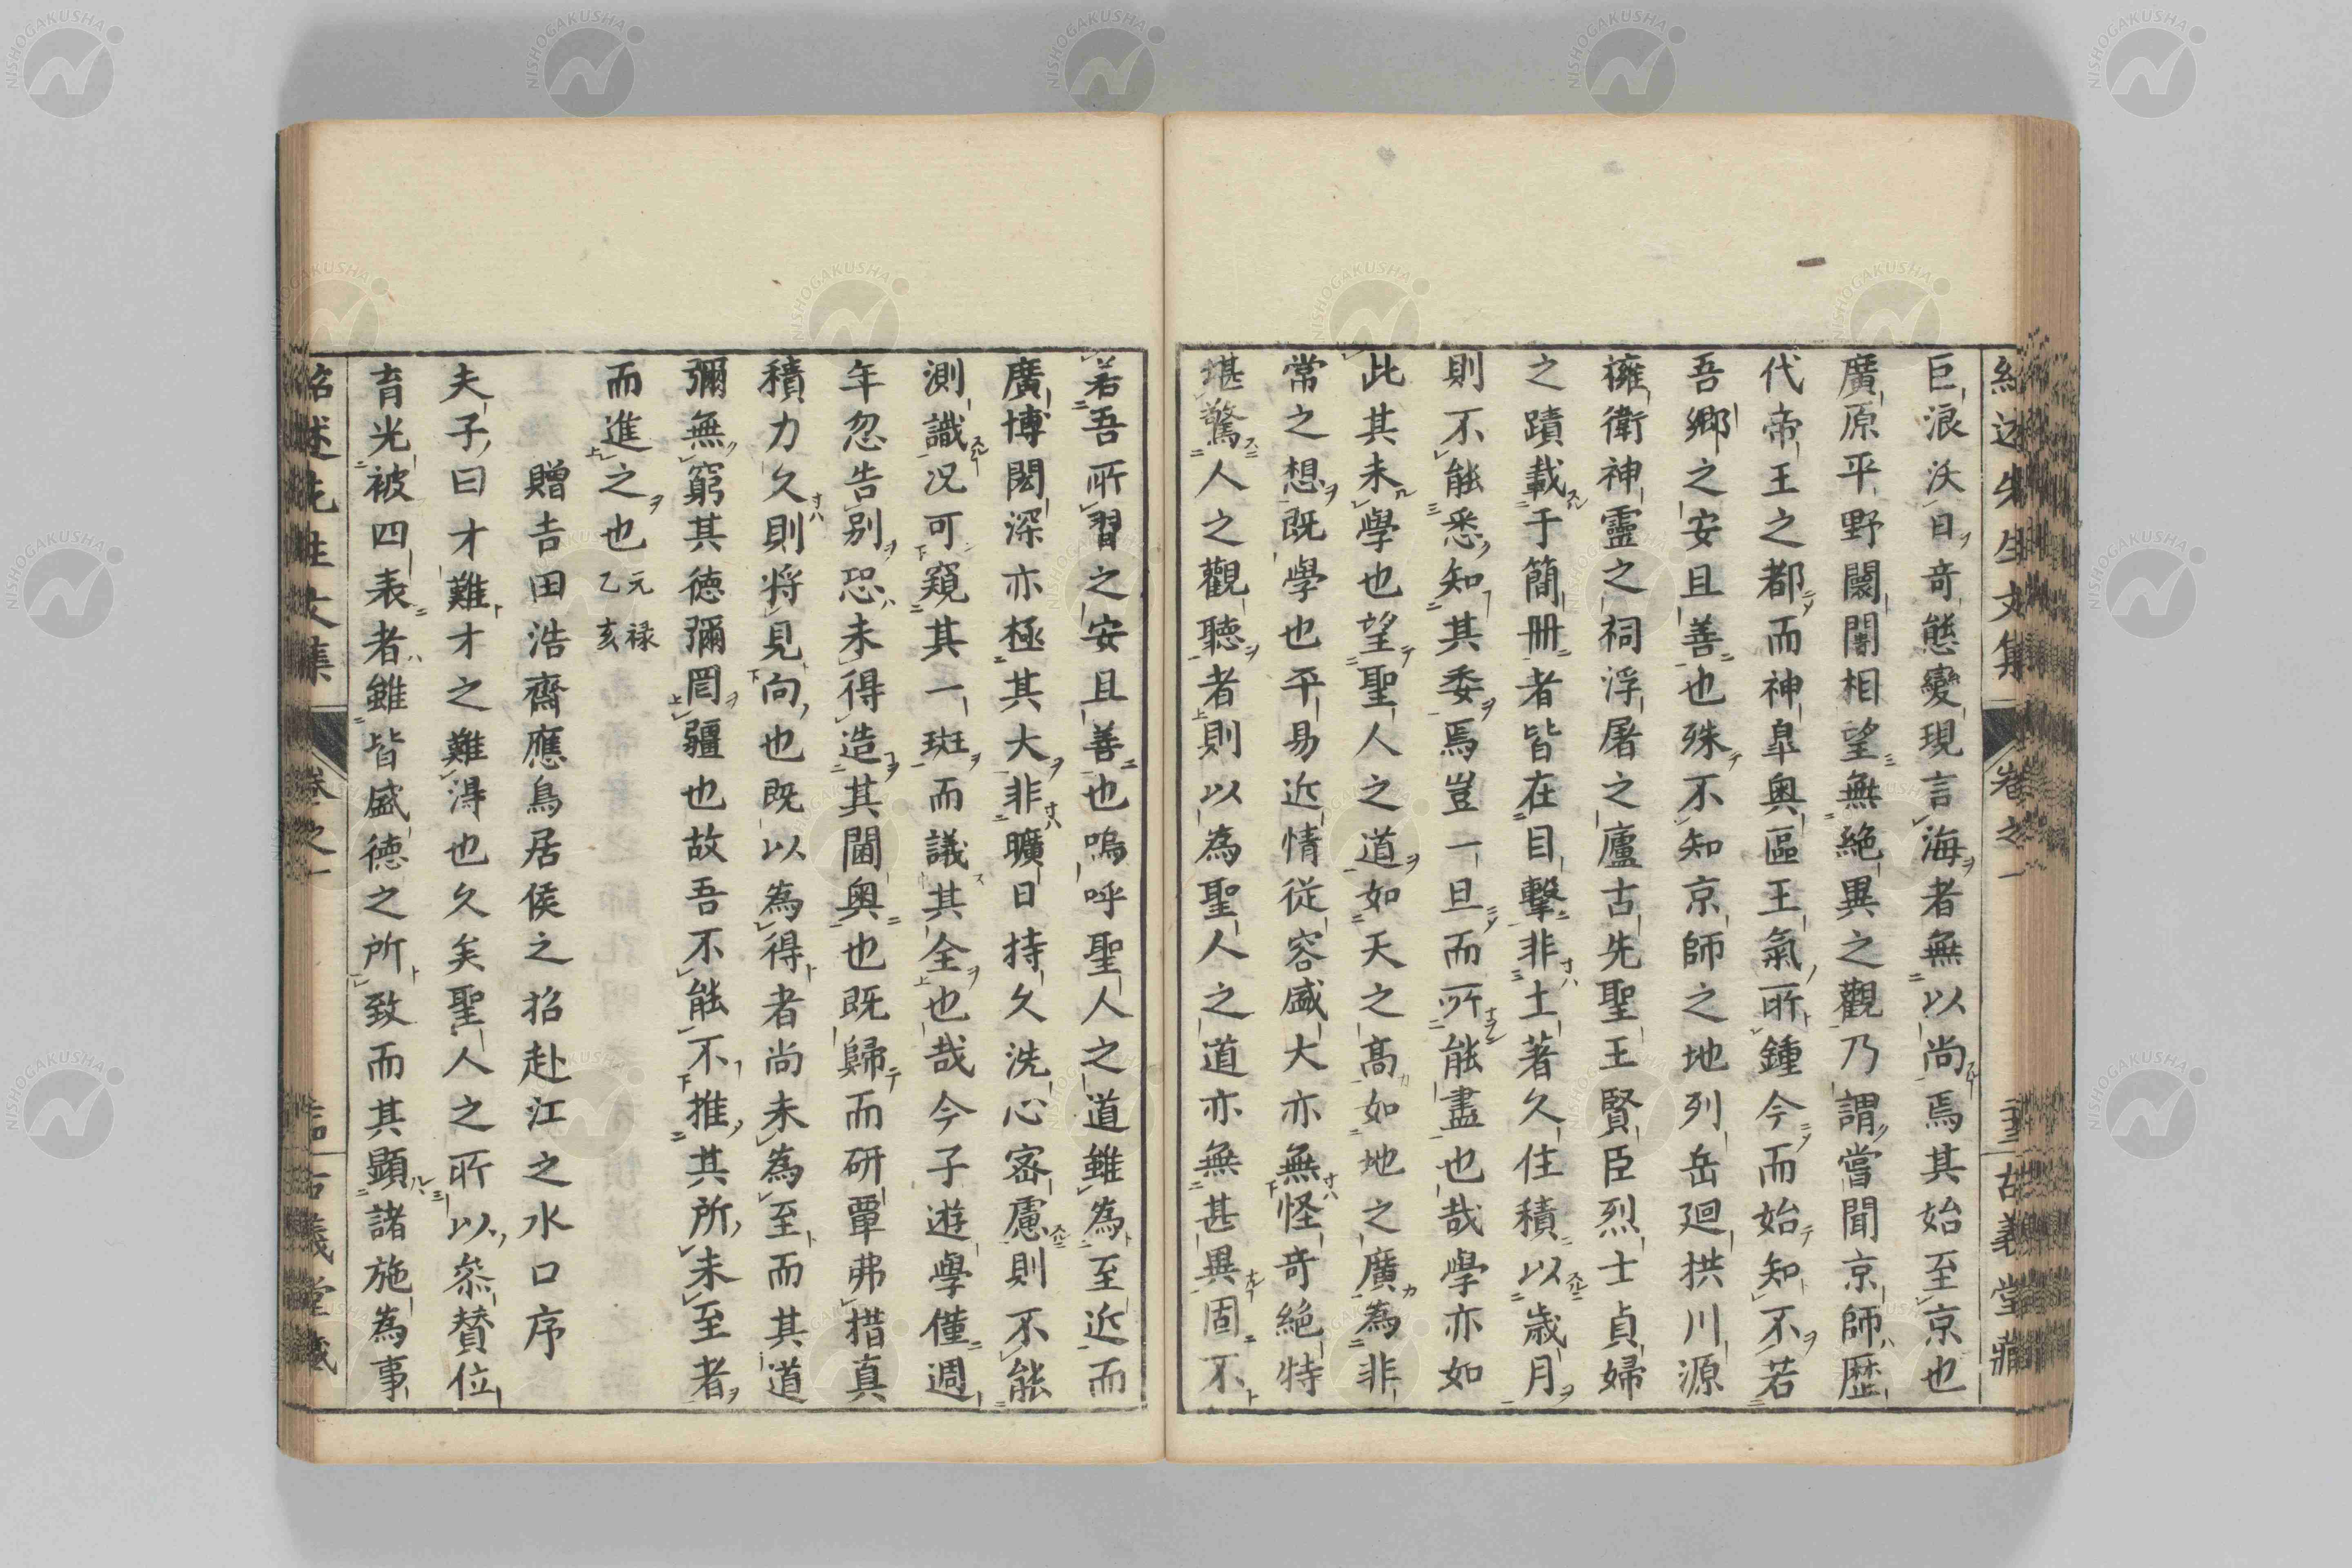 紹述先生文集 卷之一 古義堂藏
巨浪沃日奇態變現言海者無以尚焉其始至京也
廣原平野闤闠相望無絶異之觀乃謂嘗聞京師歴
代帝王之都而神皐奥區王氣所鍾今而始知不若
吾鄉之安且善也殊不知京師之地列岳廻拱川源
擁衛神靈之祠浮屠之廬古先聖王賢臣烈士貞婦
之蹟載于簡冊者皆在目擊非土著久住積以歳月
則不能悉知其委焉豈一旦而所能盡也哉學亦如
此其未學也望聖人之道如天之髙如地之廣為非
常之想既學也平易近情從容盛大亦無怪奇絶特
堪驚人之觀聽者則以為聖人之道亦無甚異固不
若吾所習之安且善也嗚呼聖人之道雖為至近而
廣博閎深亦極其大非曠日持久洗心宻慮則不能
測識况可窺其一斑而議其全也哉今子遊學僅週
年忽告别恐未得造其閫奥也既歸而研覃弗措真
積力久則将見向也既以為得者尚未為至而其道
彌無窮其德彌罔疆也故吾不能不推其所未至者
而進之也元禄乙亥
贈吉田浩齋應鳥居侯之招赴江之水口序
夫子曰才難才之難得也久矣聖人之所以叅賛位
育光被四表者雖皆盛德之所致而其顕諸施為事
紹述先生文集 卷之一 古義堂藏